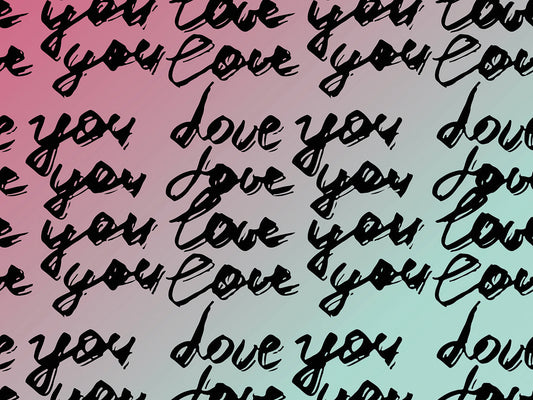 you love you love
you love you love
you love you love
you love you love
you love you love
you love you love
you love you love
you love you